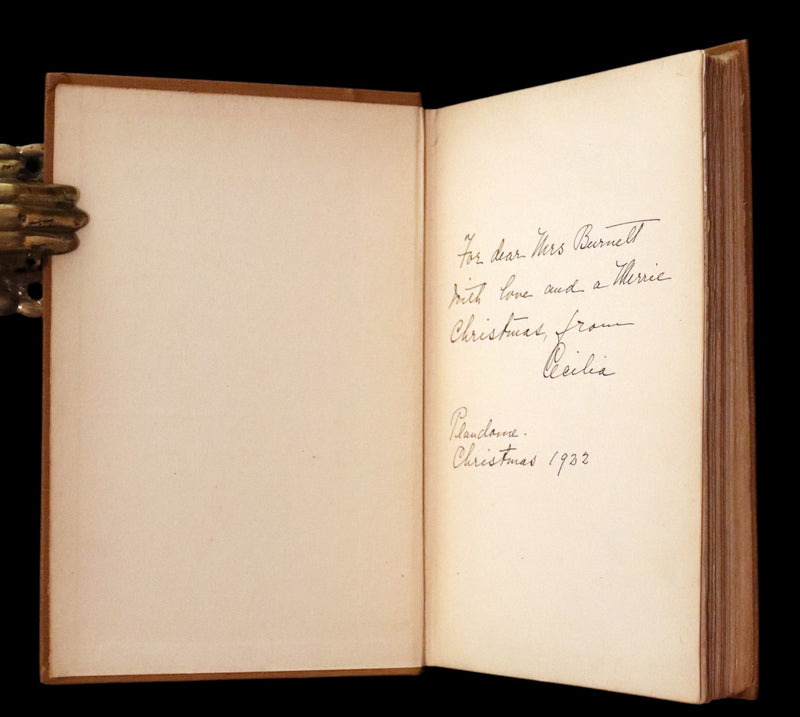 For dear Mrs Burnett
with love and a Merrie
Christmas, from
Cecilia
Plandome.
Christmas 1922